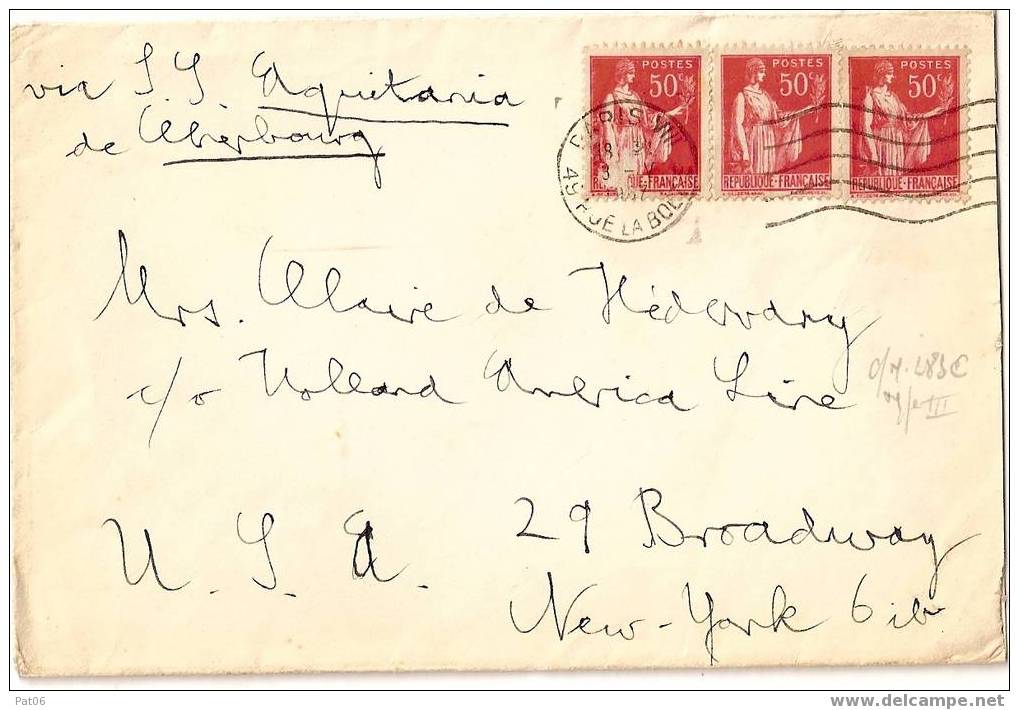 via S.S. Aquitania
de Cherbourg
POSTES
50c
REPUBLIQUE-FRANÇAISE
POSTES
50c
REPUBLIQUE-FRANÇAISE
POSTES
50c
REPUBLIQUE-FRANÇAISE
PARIS VIII
45 RUE LA BOE
Mrs. Claire de Hédervary
c/o Holland America Line
29 Broadway
U. S. A.
New-York 6
283c
III
Pat06
www.delcampe.net